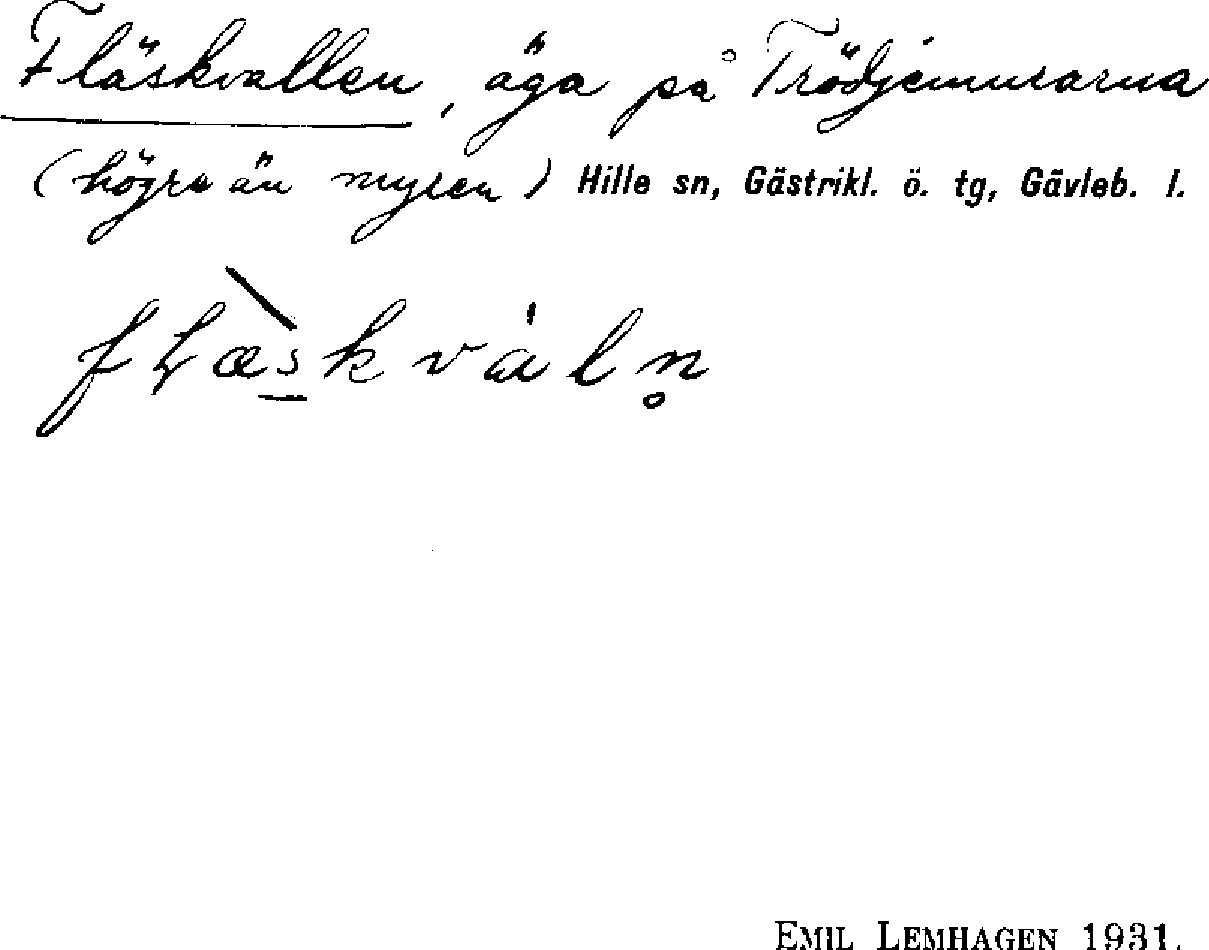 Fläskvallen, äga på Trödjemurarna
(högre än myren) Hille sn, Gästrikl. ö. tg, Gävleb. l.
fłæ̀skváln̥
EMIL LEMHAGEN 1931.